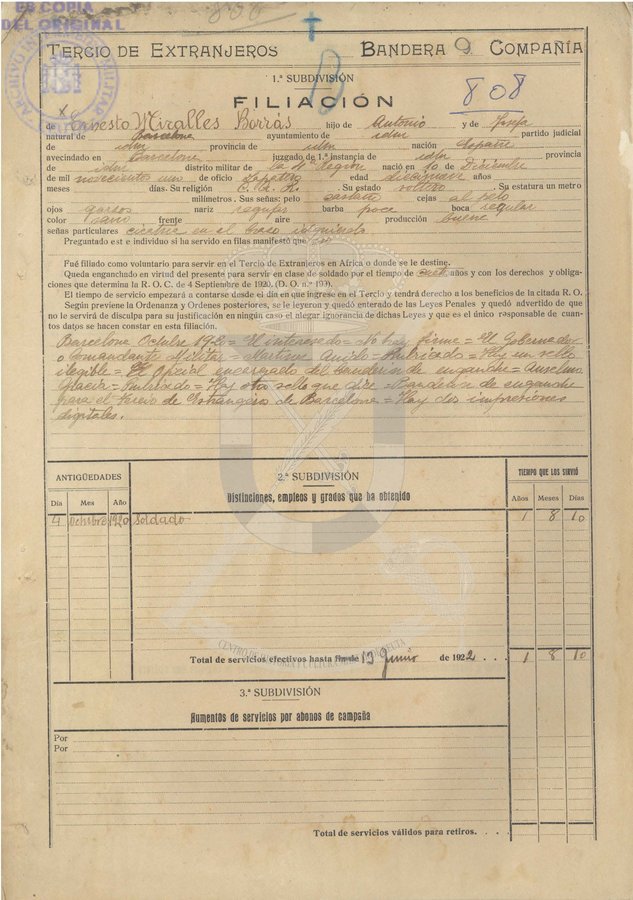 ES COPIA
DEL ORIGINAL
ARCHIVO MILITAR
TERCIO DE EXTRANJEROS BANDERA COMPAÑÍA
1.ª SUBDIVISIÓN
FILIACIÓN 808
de Ernesto Miralles Borrás hijo de Antonio y de Josefa
natural de Barcelona ayuntamiento de idm partido judicial
de idm provincia de idm nación España
avecindado en Barcelona juzgado de 1.ª instancia de idm provincia
de idm distrito militar de la 4ª Región nació en 10 de Diciembre
de mil novecientos uno de oficio zapatero edad diecinueve años
meses días. Su religión C. A. R. Su estado soltero Su estatura un metro
milímetros. Sus señas: pelo castaño cejas al pelo
ojos garsos nariz regular barba poca boca regular
color sano frente aire producción buena
señas particulares cicatriz en el brazo izquierdo
Preguntado este individuo si ha servido en filas manifestó que no
Fué filiado como voluntario para servir en el Tercio de Extranjeros en Africa o donde se le destine.
Queda enganchado en virtud del presente para servir en clase de soldado por el tiempo de años y con los derechos y obliga-
ciones que determina la R. O. C. de 4 Septiembre de 1920. (D. O. n.º 199).
El tiempo de servicio empezará a contarse desde el día en que ingrese en el Tercio y tendrá derecho a los beneficios de la citada R. O.
Según previene la Ordenanza y Ordenes posteriores, se le leyeron y quedó enterado de las Leyes Penales y quedó advertido de que
no le servirá de disculpa para su justificación en ningún caso el alegar ignorancia de dichas Leyes y que es el único responsable de cuan-
tos datos se hacen constar en esta filiación.
Barcelona Octubre 1920 = El interesado = No hay firma = El Gobernador
o Comandante Militar = Martínez Anido = Rubricado = Hay un sello
ilegible = El Oficial encargado del banderín de enganche = Anselmo
García = Rubricado = Hay otro sello que dice = Banderín de enganche
para el Tercio de Extranjeros de Barcelona = Hay dos impresiones
digitales.
ANTIGÜEDADES 2.ª SUBDIVISIÓN TIEMPO QUE LOS SIRVIÓ
Día Mes Año Distinciones, empleos y grados que ha obtenido Años Meses Días
4 Octubre 1920 Soldado 1 8 10
Total de servicios efectivos hasta fin de 13 Junio de 1922 . . . 1 8 10
3.ª SUBDIVISIÓN
Aumentos de servicios por abonos de campaña
Por
Por
Total de servicios válidos para retiros. . . .